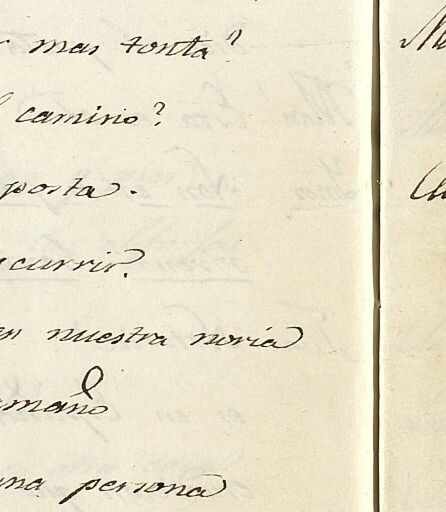 mas tonta?
camino?
posta.
currir.
en nuestra noria
amaño
una persona